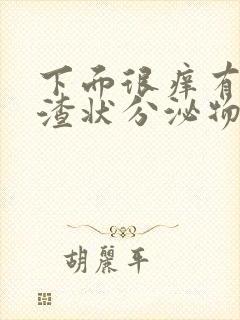 下面很痒有
渣状分泌物
胡丽平